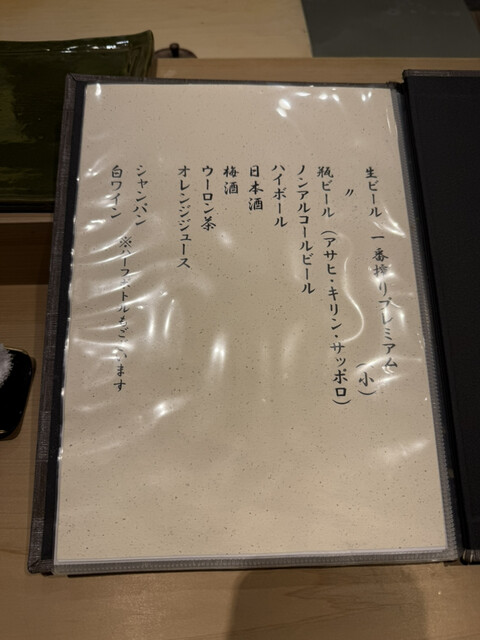 生ビール 一番搾りプレミアム
〃 (小)
瓶ビール (アサヒ・キリン・サッポロ)
ノンアルコールビール
ハイボール
日本酒
梅酒
ウーロン茶
オレンジジュース
シャンパン ※ハーフボトルもございます
白ワイン